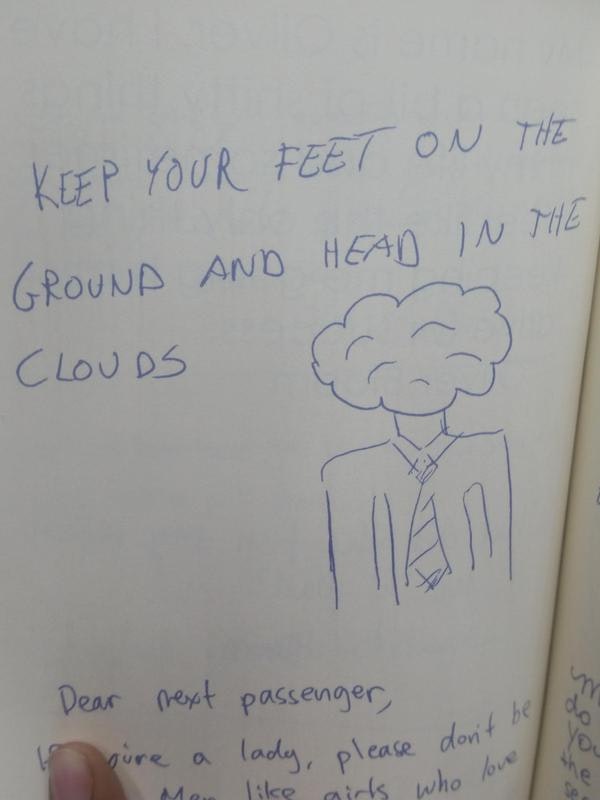 KEEP YOUR FEET ON THE
GROUND AND HEAD IN THE
CLOUDS
Dear next passenger,
a lady, please don't be
Men like girls who love
do
you
the